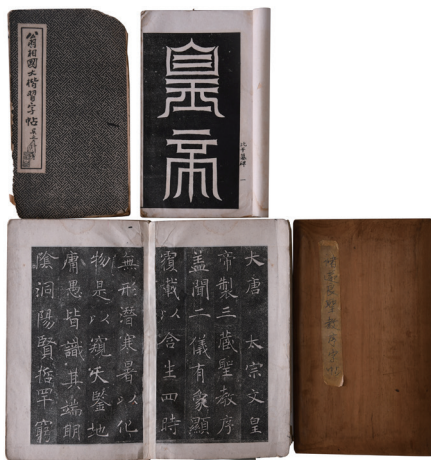 翁相國大楷習字帖
皇帝
大唐 太宗文皇
帝製三藏聖教序
盖聞二儀有象顯
覆載以含生四時
無形潛寒暑以化
物是以窺天鑒地
庸愚皆識其端明
陰洞陽賢哲罕窮